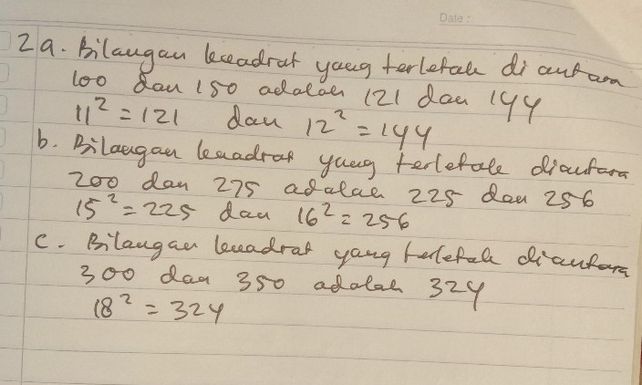 Date :
2 a. Bilangan kuadrat yang terletak di antara
100 dan 150 adalah 121 dan 144
11² = 121 dan 12² = 144
b. Bilangan kuadrat yang terletak diantara
200 dan 275 adalah 225 dan 256
15² = 225 dan 16² = 256
c. Bilangan kuadrat yang terletak diantara
300 dan 350 adalah 324
18² = 324